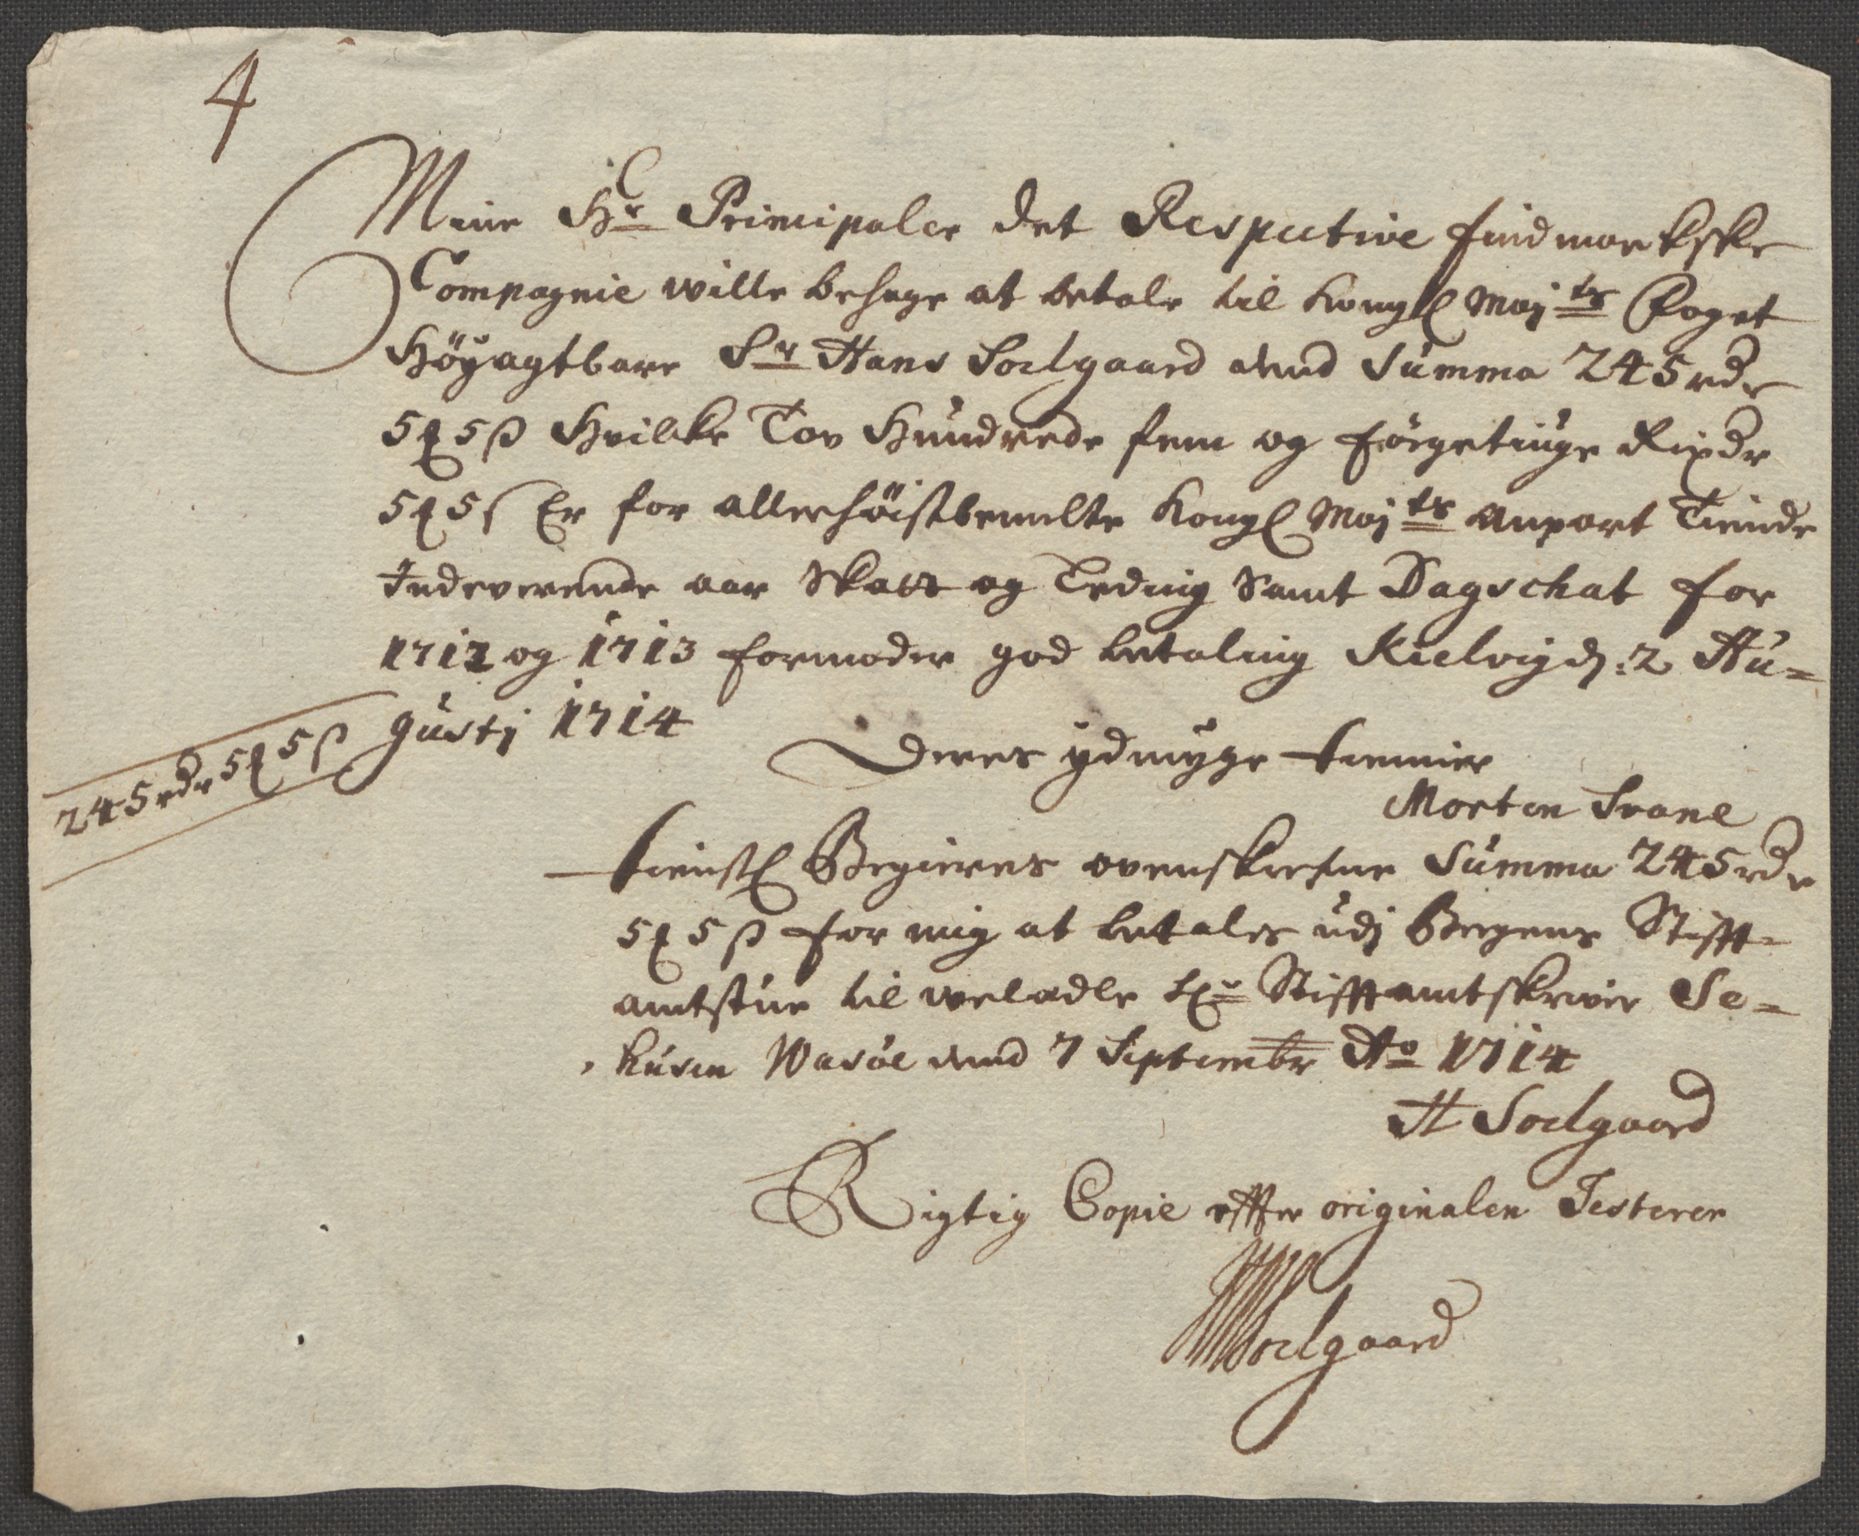 4
Mine Hr Principaler Det Respective findmarkske
Compagnie wille behage at betale til Kongl Majts Foget
Höyagtbare Sr Hans Soelgaard dend Summa 245 rdr
5 5 ß Hvilke Tov Hundrede fem og förgetiuge Rixdr
5 5 ß Er for allerhöistbemelte Kongl Majts anpart Tiende
Indeverende aar Skatt og Leding Samt Dagschat for
1712 og 1713 formoder god betaling Kielvig d: 2 Au-
gustj 1714
245 rdr 5 5 ß
Deres ydmyge tienner
Morten Svane
tienstl Begieres ovenskrefne Summa 245 rdr
5 5 ß for mig at betales udj Bergens Stifft-
amtstue til weladle Hr Stifftamtskriver Se-
husen Wasöe dend 7 Septembr Ao 1714
H Soelgaard
Rigtig Copie effter originalen Testerer
HSoelgaard